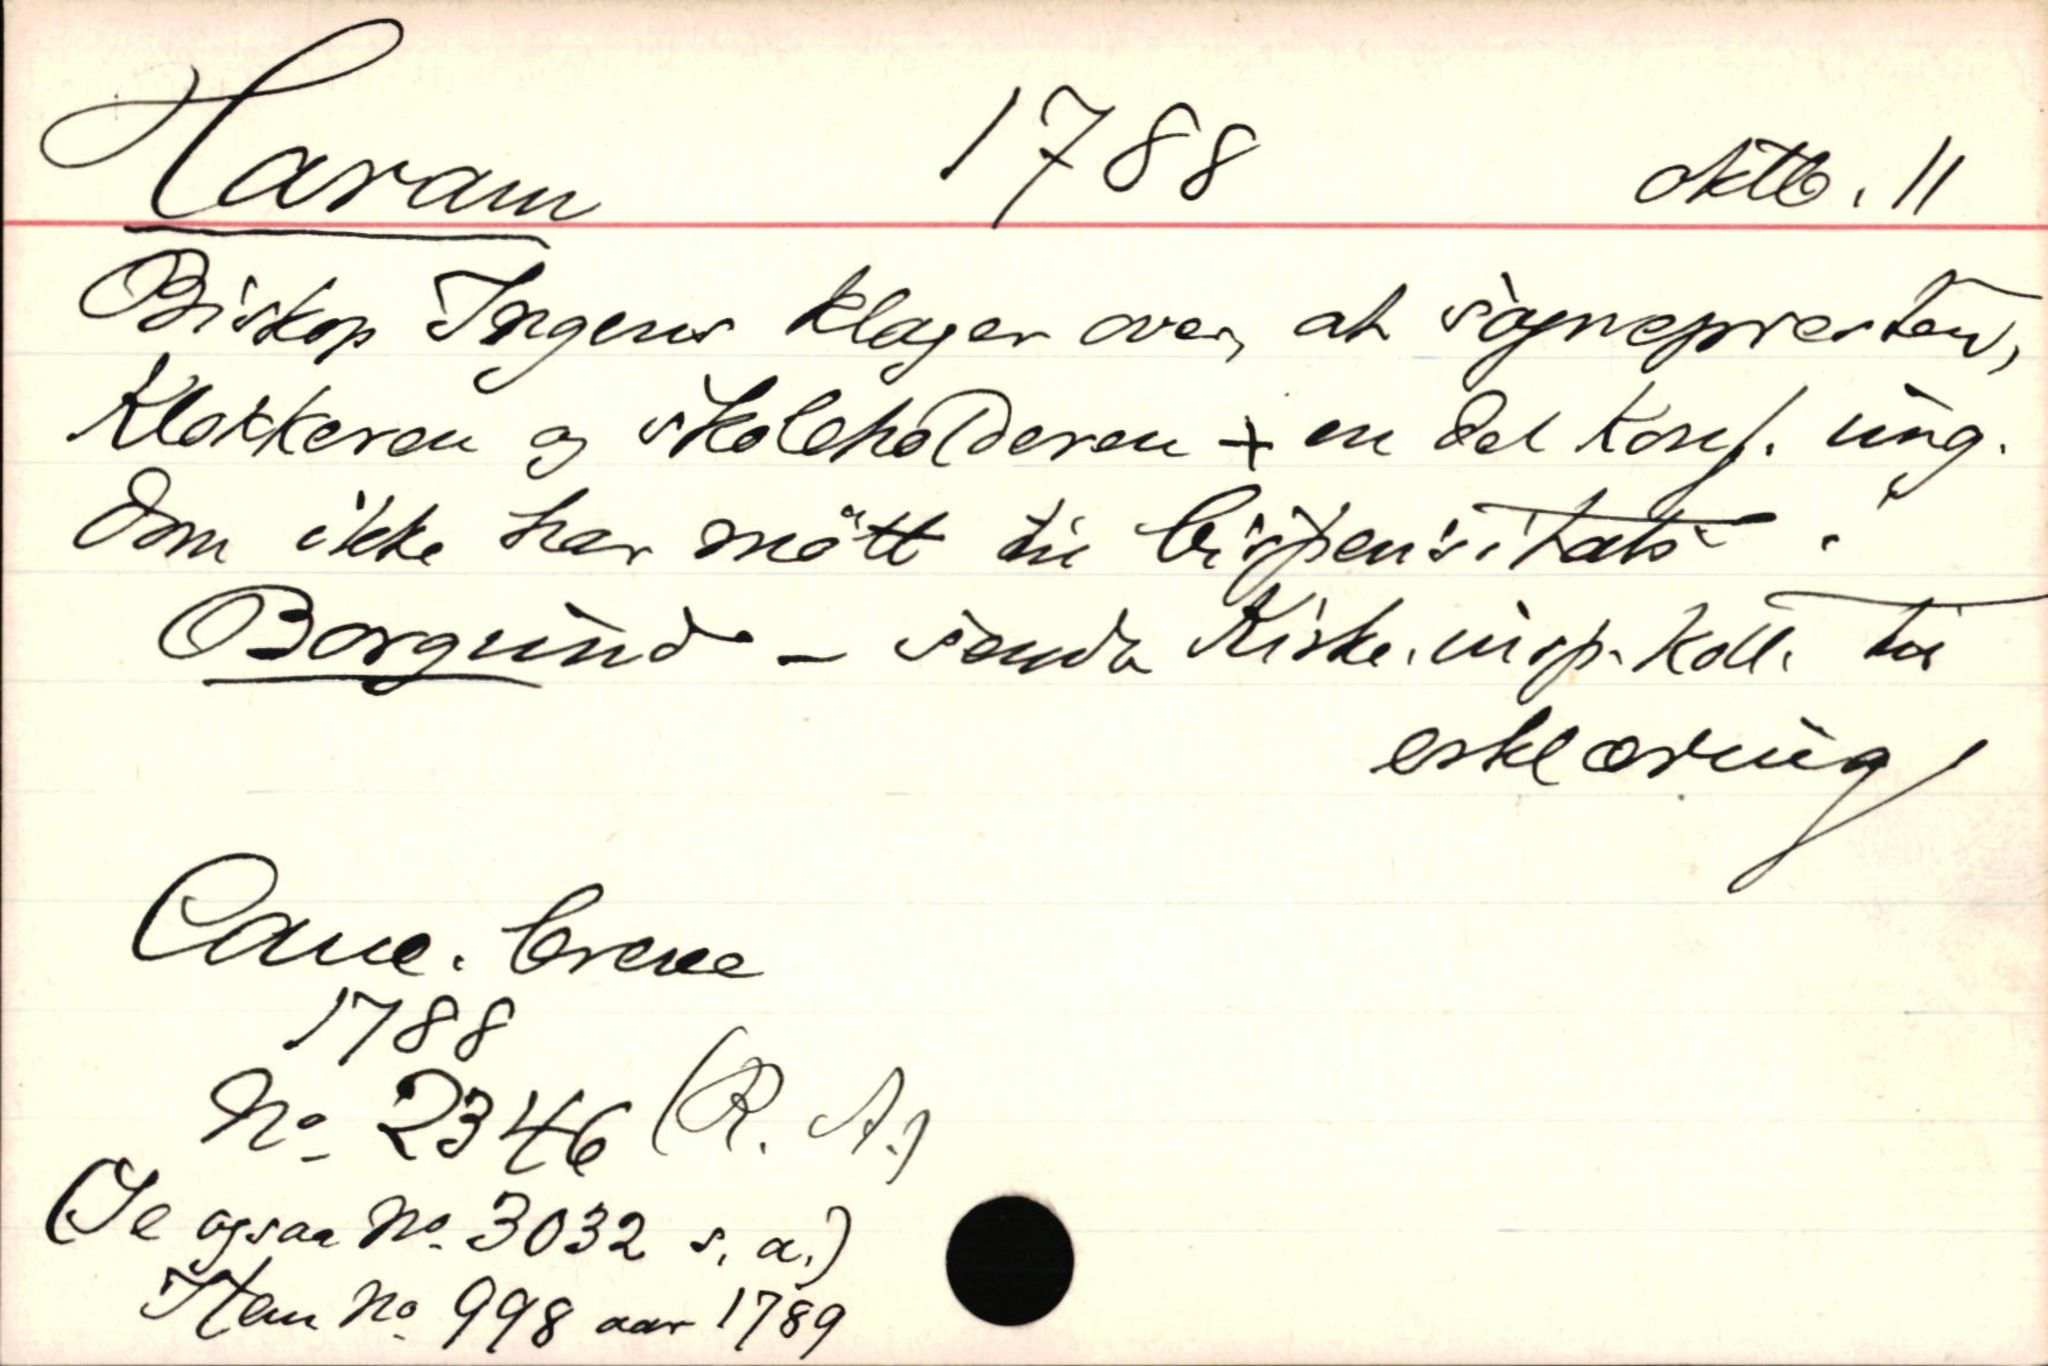 Haram 1788 oktb. 11
Biskop Irgens klager over, at sognepresten,
Klokkeren og skoleholderen + en del konf. ung.
dom ikke har mött til bispevisitats i
Borgund – sendn Kirke. insp. koll. til
erklæring
Canc. breve
1788
No. 2346 (R. A.)
(Se ogsaa No. 3032 s. a.)
Item No. 998 aar 1789